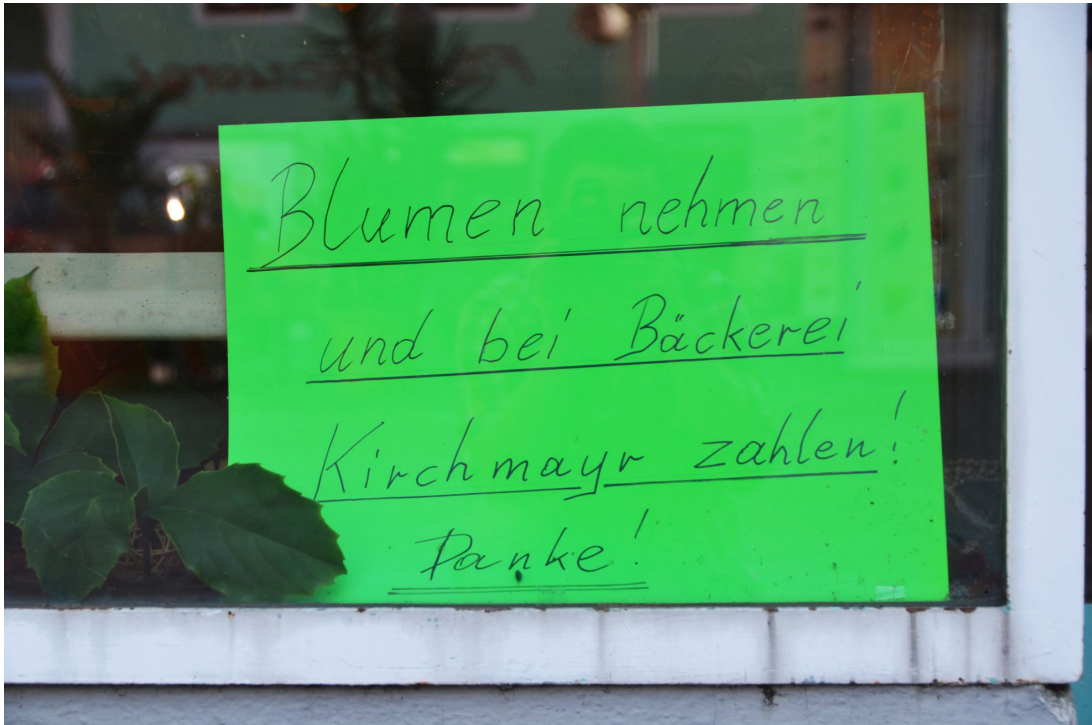 Blumen nehmen
und bei Bäckerei
Kirchmayr zahlen!
Danke!